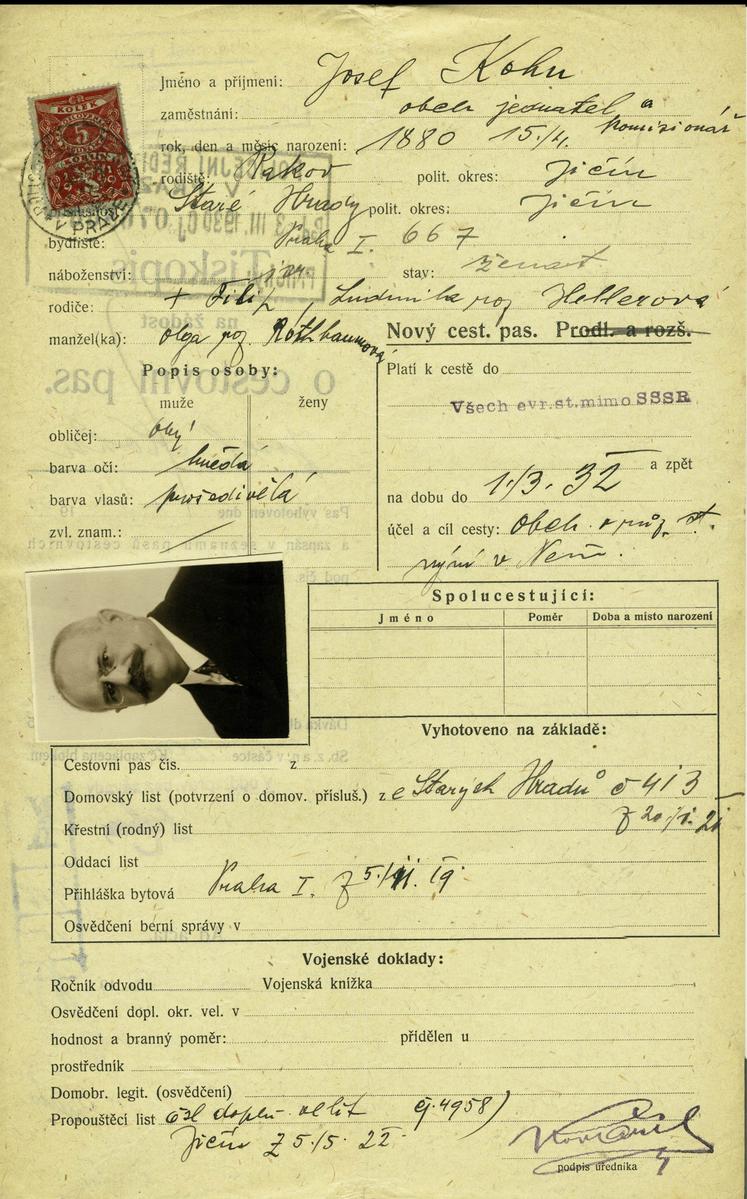 Jméno a příjmení: Josef Kohn
zaměstnání: obch jednatel a
komisionář
rok, den a měsíc narození: 1880 15./4.
rodiště: polit. okres: Jičín
Staré Hrady polit. okres: Jičín
bydliště: Praha I. 667
náboženství: stav: ženat
rodiče: + Filip, Ludmila roz Hellerová
manžel(ka): Olga roz. Rothbaumová
Nový cest. pas. Prodl. a rozš.
Popis osoby:
muže ženy
obličej:
barva očí: hnědá
barva vlasů: prošedivělá
zvl. znam.:
Platí k cestě do
Všech evr. st. mimo SSSR
a zpět
na dobu do 1./3. 32
účel a cíl cesty: Obch. v růz. st.
nyní v Něm.
Spolucestující:
Jméno Poměr Doba a místo narození
Vyhotoveno na základě:
Cestovní pas čís. z
Domovský list (potvrzení o domov. přísluš.) z e Starých Hradů č 413
Křestní (rodný) list
Oddací list
Přihláška bytová Praha I. z 5./ 19.
Osvědčení berní správy v
Vojenské doklady:
Ročník odvodu Vojenská knížka
Osvědčení dopl. okr. vel. v
hodnost a branný poměr: přidělen u
prostředník
Domobr. legit. (osvědčení)
Propouštěcí list čsl doplň. velit čj. 4958)
Jičín z 5./5. 22.
podpis úředníka
KOLEK
5
V PRAZE